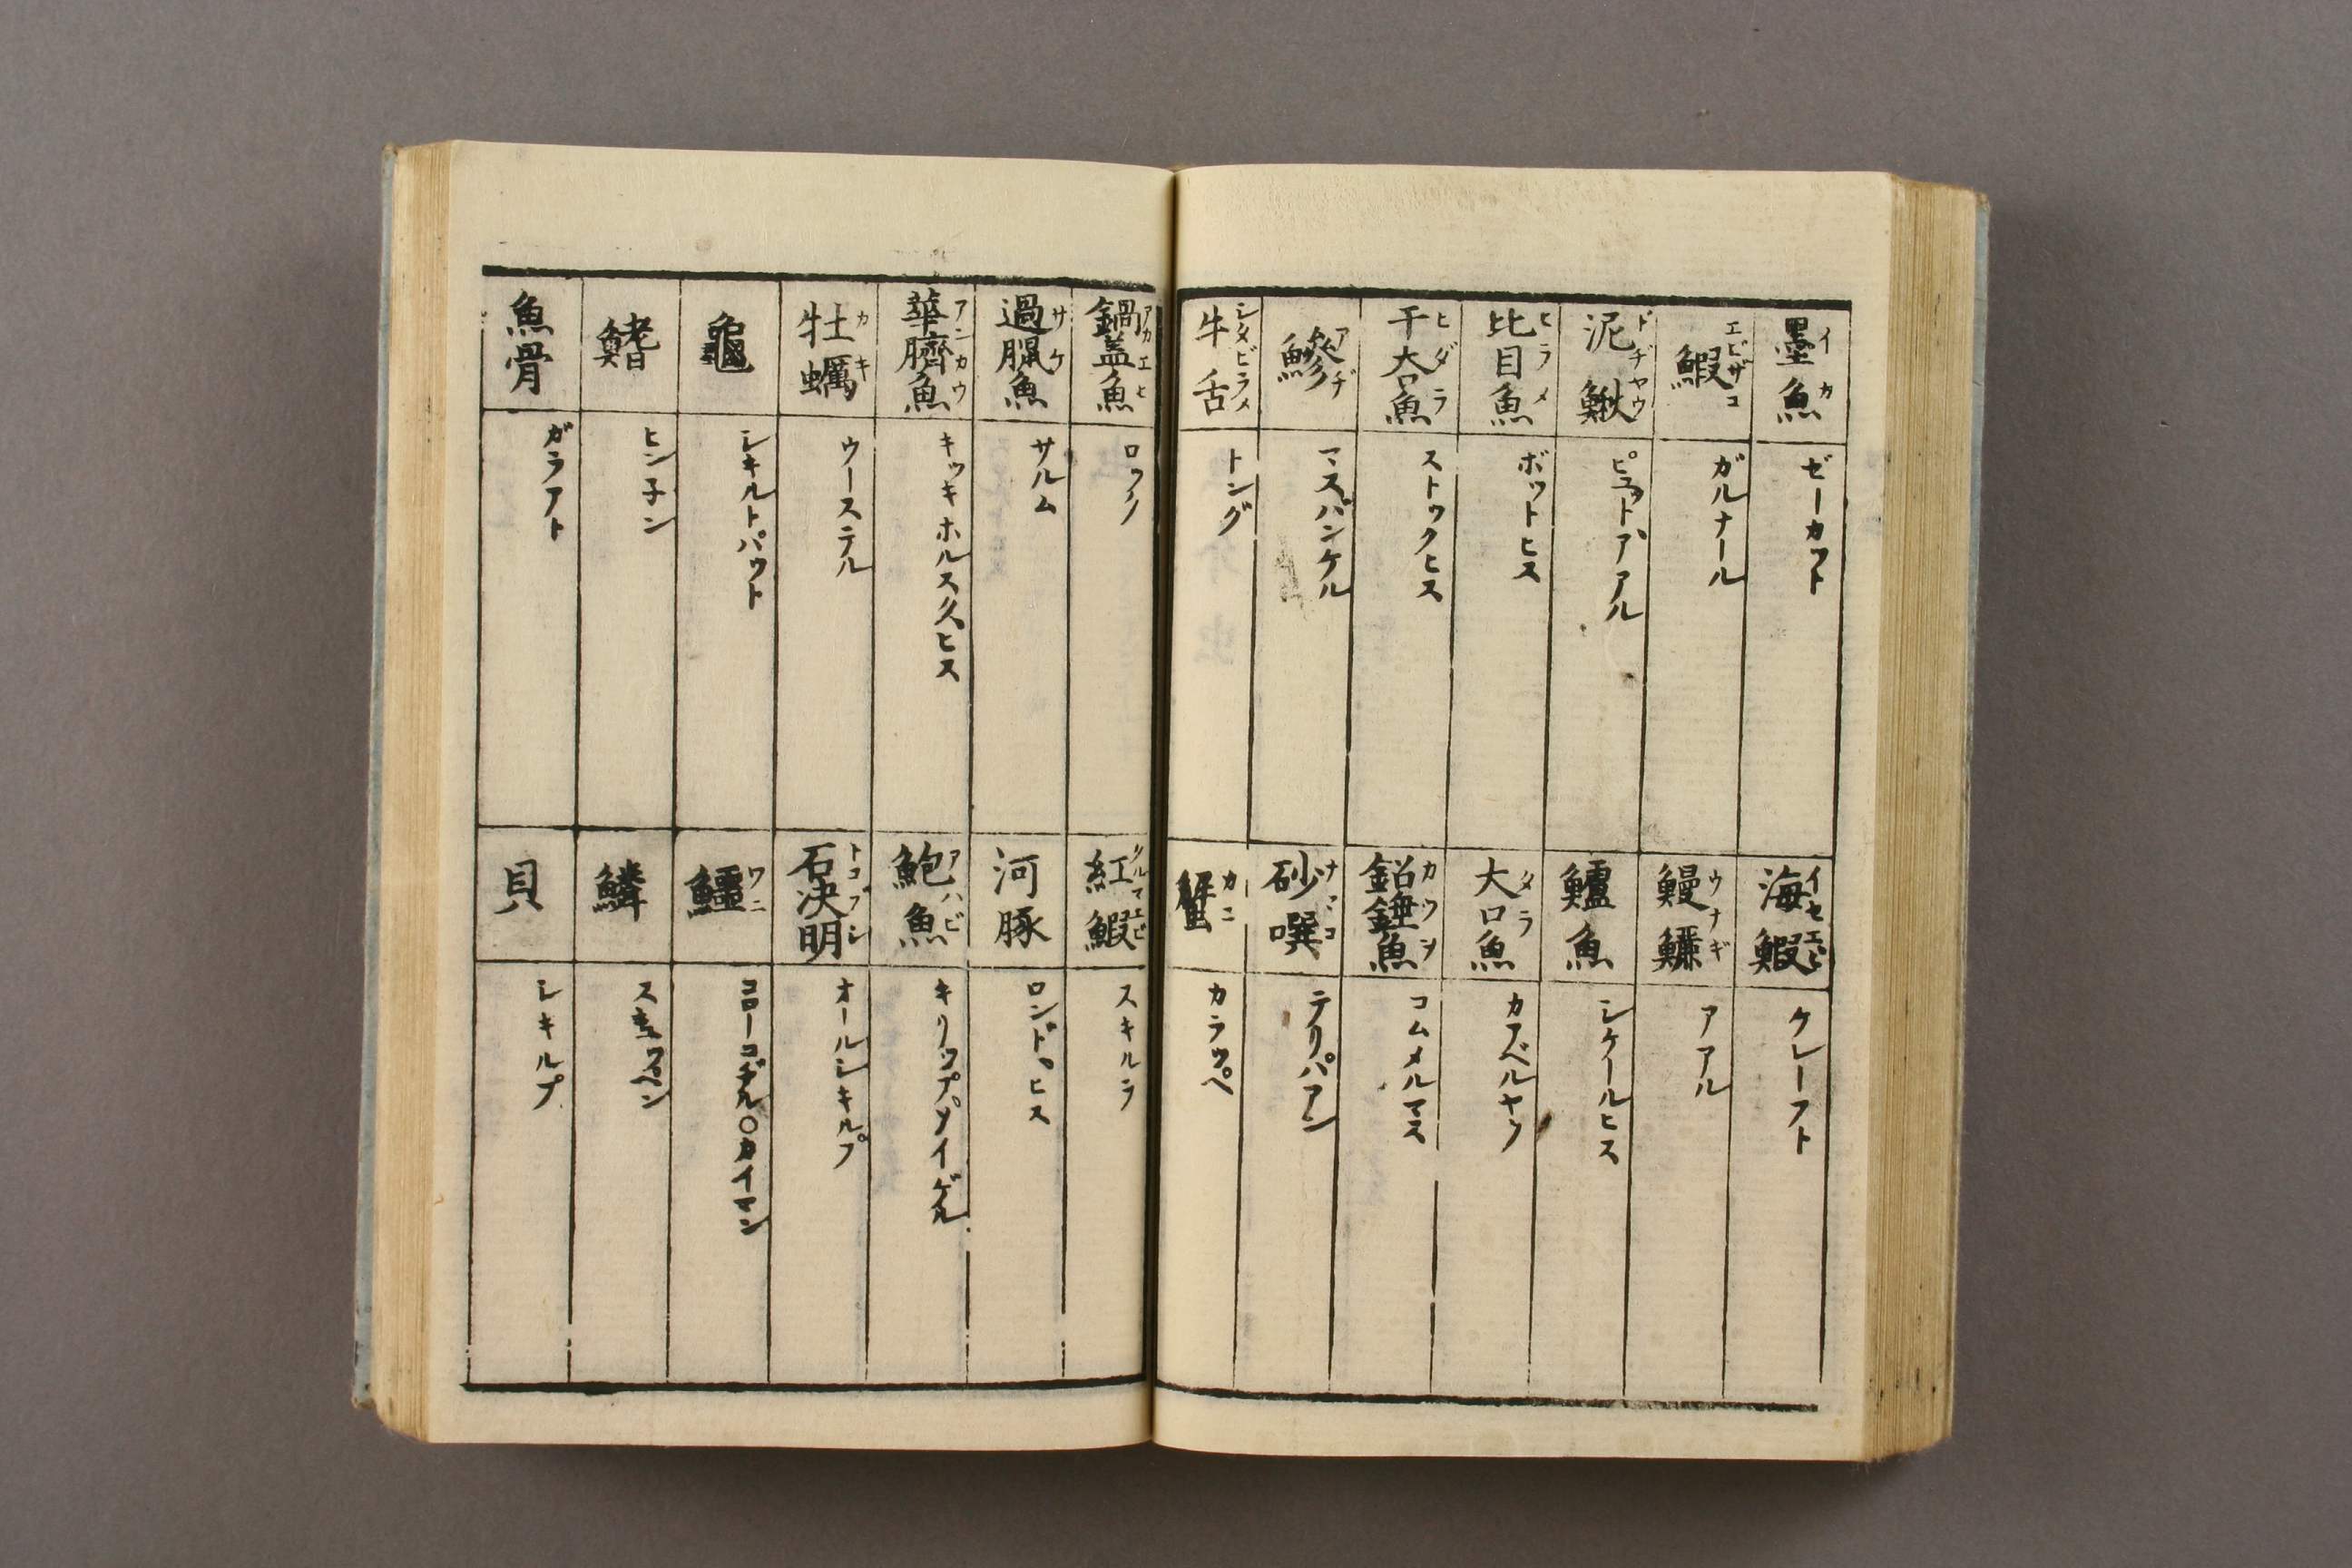 墨魚 イカ
ゼーカット
鰕 エビザコ
ガルナール
泥鰍 ドヂヤウ
ピュートアアル
比目魚 ヒラメ
ボットヒス
干大口魚 ヒダラ
ストックヒス
鯵 アヂ
マスバンケル
牛舌 シタビラメ
トング
海鰕 イセエビ
クレーフト
鰻鱺 ウナギ
アアル
鱸魚 
シケールヒス
大口魚 タラ
カアベルヤウ
鉊錘魚 カウヲ
コムメルマス
砂噀 ナマコ
テリパアン
蟹 カニ
カラッペ
鍋盖魚 アカエヒ
ロッノ
過臘魚 サケ
サルム
華臍魚 アンカウ
キッキホルス久ヒス
牡蠣 カキ
ウーステル
龜
シキルトパット
鰭
ヒン子ン
魚骨
ガラアト
紅鰕 クルマエビ
スキルラ
河豚
ロンドヒス
鮑魚 アハビ
キリップソイゲル
石决明 トコブシ
オールシキルプ
鱷 ワニ
コローコヂル○カイマン
鱗
スキュッペン
貝
シキルプ